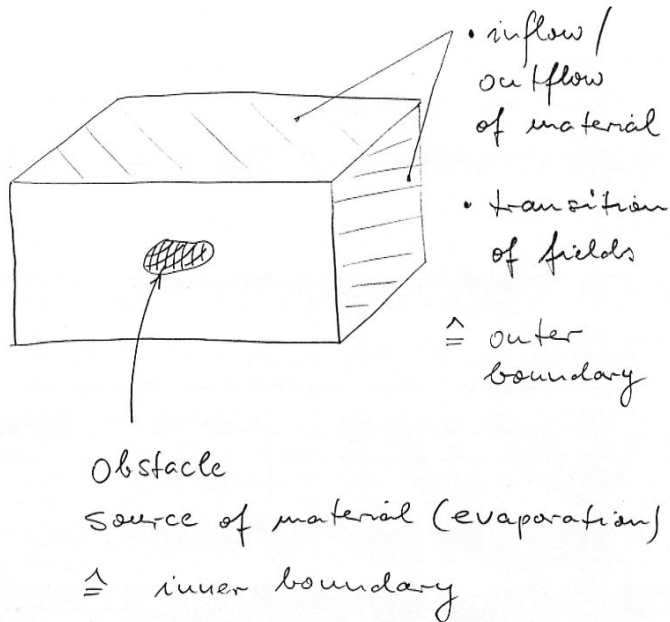 • inflow /
outflow
of material
• transition
of fields
≙ outer
boundary
Obstacle
Source of material (evaporation)
≙ inner boundary